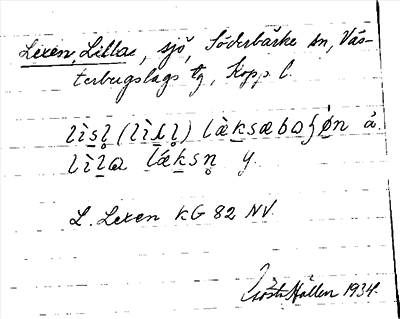 Lexen, Lilla, sjö, Söderbärke sn, Väs-
terbergslags tg, Kopp l.
lìsl̥ (lìḷl̥) lǽksæbɑʃø̀n å.
lìla lǽksn̥ y.
L. Lexen KG 82 NV.
Gösta Hallén 1934.